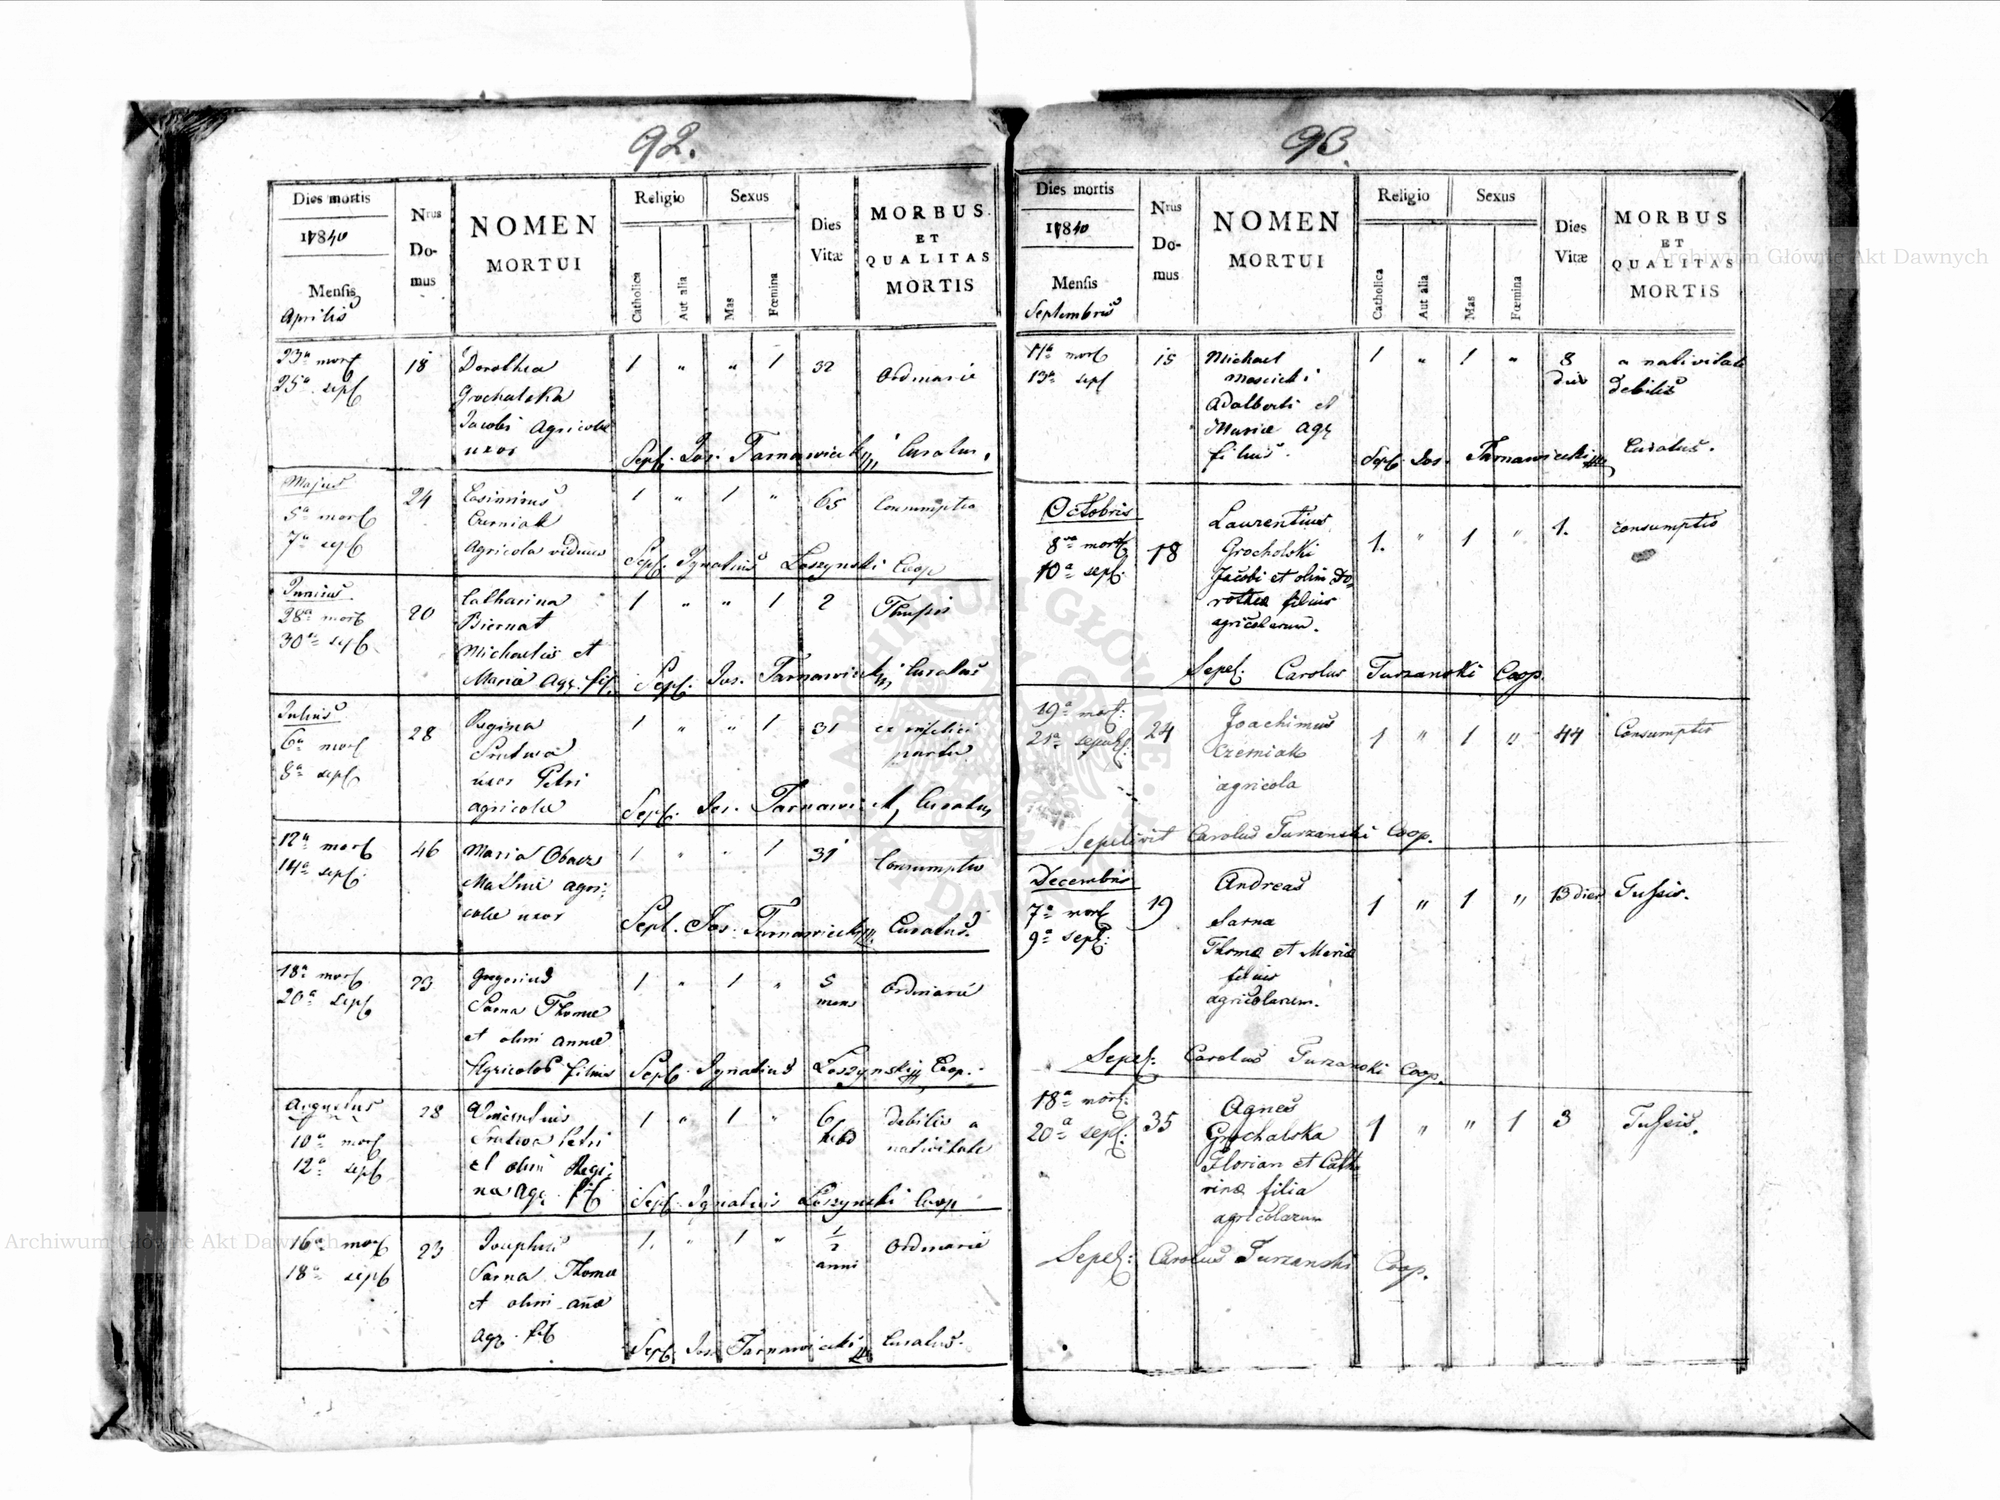 92.
Dies mortis
1840
Mensis
Aprilis
Nrus
Do-
mus
NOMEN
MORTUI
Religio
Catholica
Aut alia
Sexus
Mas
Fœmina
Dies
Vitæ
MORBUS
ET
QUALITAS
MORTIS
23a mort
25a sepl
18
Dorothea
Grochalska
Jacobi Agricolæ
uxor
1 " " 1 32
Ordinarie
Sepl. Jos. Tarnawiecki Curatus.
Majus
5a mort
7a sepl
24
Casimirus
Czerniak
Agricola viduus
1 " 1 " 65
Consumptio
Sepl. Ignatius Loszynski Coop
Junius.
28a mort
30a sepl
20
Catharina
Biernat
Michaelis et
Mariæ Agr. fil.
1 " " 1 2
Thussis
Sepl. Jos. Tarnawiecki Curatus
Julius
6a mort
8a sepl
28
Regina
uxor Petri
agricolæ
1 " " 1 31
ex infelici
partu
Sepl. Jos. Tarnawiecki Curatus
12a mort
14a sepl.
46
Maria Obacz
Mathiæ agri-
colæ uxor
1 " " 1 31
Consumptio
Sepl. Jos. Tarnawiecki Curatus.
18a mort
20a sepl.
23
Gregorius
Sarna Thomæ
et olim Annæ
Agricolæ filius
1 " 1 " 5
mens
Ordinarie
Sepl. Ignatius Loszynski Coop.
Augustus
10a mort
12a sepl
28
Petri
et olim Regi-
næ Agr. fil
1 " 1 " 6
hebd
debilis a
nativitate
Sepl. Ignatius Loszynski Coop
16a mort
18a sepl
23
Josephus
Sarna Thomæ
et olim Annæ
Agr. fil
1. " 1 " 1/2
anni
Ordinarie
Sepl. Jos. Tarnawiecki Curatus.
93.
Dies mortis
1840
Mensis
Septembris
Nrus
Do-
mus
NOMEN
MORTUI
Religio
Catholica
Aut alia
Sexus
Mas
Fœmina
Dies
Vitæ
MORBUS
ET
QUALITAS
MORTIS
11a mort
13a sepl
15
Michael
Moscicki
Adalberti et
Mariæ Agr
filius.
1 " 1 " 8
a nativitate
debilis
Sepl. Jos. Tarnawiecki Curatus.
Octobris
8va mort
10a sepl.
18
Laurentius
Grocholski
Jacobi et olim Do-
rotheæ filius
agricolarum.
1. " 1 " 1.
consumptio
Sepel. Carolus Turzanski Coop.
19a mort.
21a sepul.
24
Joachimus
Czerniak
agricola
1 " 1 " 44
Consumptio
Sepelivit Carolus Turzanski Coop.
Decembris
7a mort
9a sepl.
19
Andreas
Sarna
Thomæ et Mariæ
filius
agricolarum.
1 " 1 " 13 dier
Tussis.
Sepel. Carolus Turzanski Coop.
18a mort.
20a sepl.
35
Agnes
Grochalska
Florian et Catha
rinæ filia
agricolarum
1 " " 1 3
Tussis.
Sepel. Carolus Turzanski Coop.
Archiwum Główne Akt Dawnych
Archiwum Główne Akt Dawnych
ARCHIWUM GŁÓWNE AKT DAWNYCH